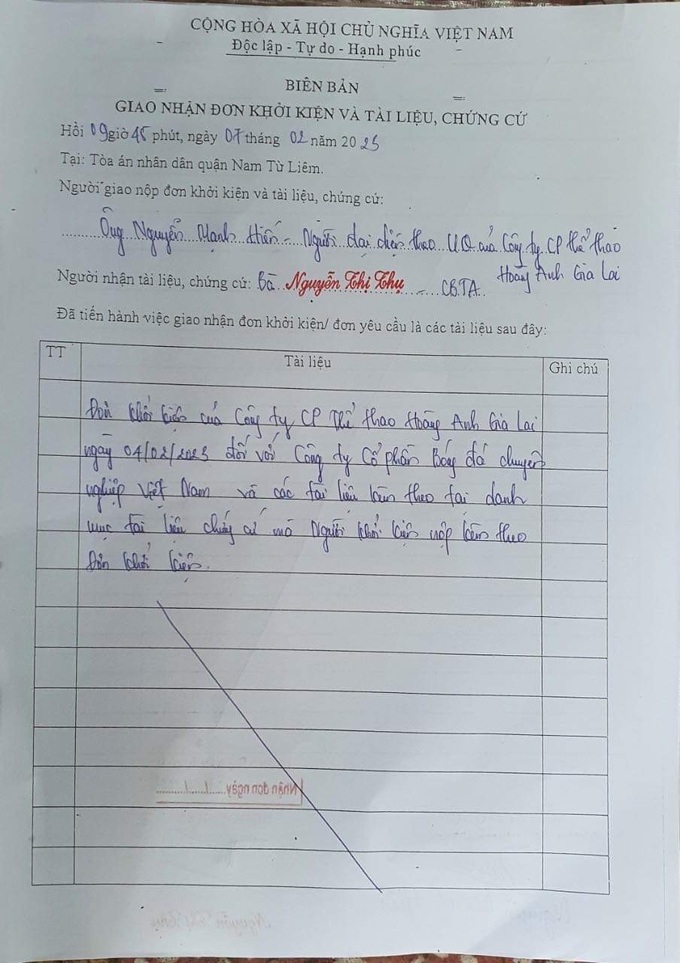 CỘNG HÒA XÃ HỘI CHỦ NGHĨA VIỆT NAM
Độc lập - Tự do - Hạnh phúc
BIÊN BẢN
GIAO NHẬN ĐƠN KHỞI KIỆN VÀ TÀI LIỆU, CHỨNG CỨ
Hồi 09 giờ 45 phút, ngày 07 tháng 02 năm 2023
Tại: Tòa án nhân dân quận Nam Từ Liêm.
Người giao nộp đơn khởi kiện và tài liệu, chứng cứ:
Ông Nguyễn Mạnh Hiến - Người đại diện theo UQ của Công ty CP thể thao
Hoàng Anh Gia Lai
Người nhận tài liệu, chứng cứ: bà Nguyễn Thị Thụ - CBTA.
Đã tiến hành việc giao nhận đơn khởi kiện/ đơn yêu cầu là các tài liệu sau đây:
TT Tài liệu Ghi chú
Đơn khởi kiện của Công ty CP Thể thao Hoàng Anh Gia Lai
ngày 04/02/2023 đối với Công ty Cổ phần Bóng đá chuyên
nghiệp Việt Nam và các tài liệu kèm theo tại danh
mục tài liệu chứng cứ mà Người khởi kiện nộp kèm theo
Đơn khởi kiện.
Nhận đơn ngày....../....../......